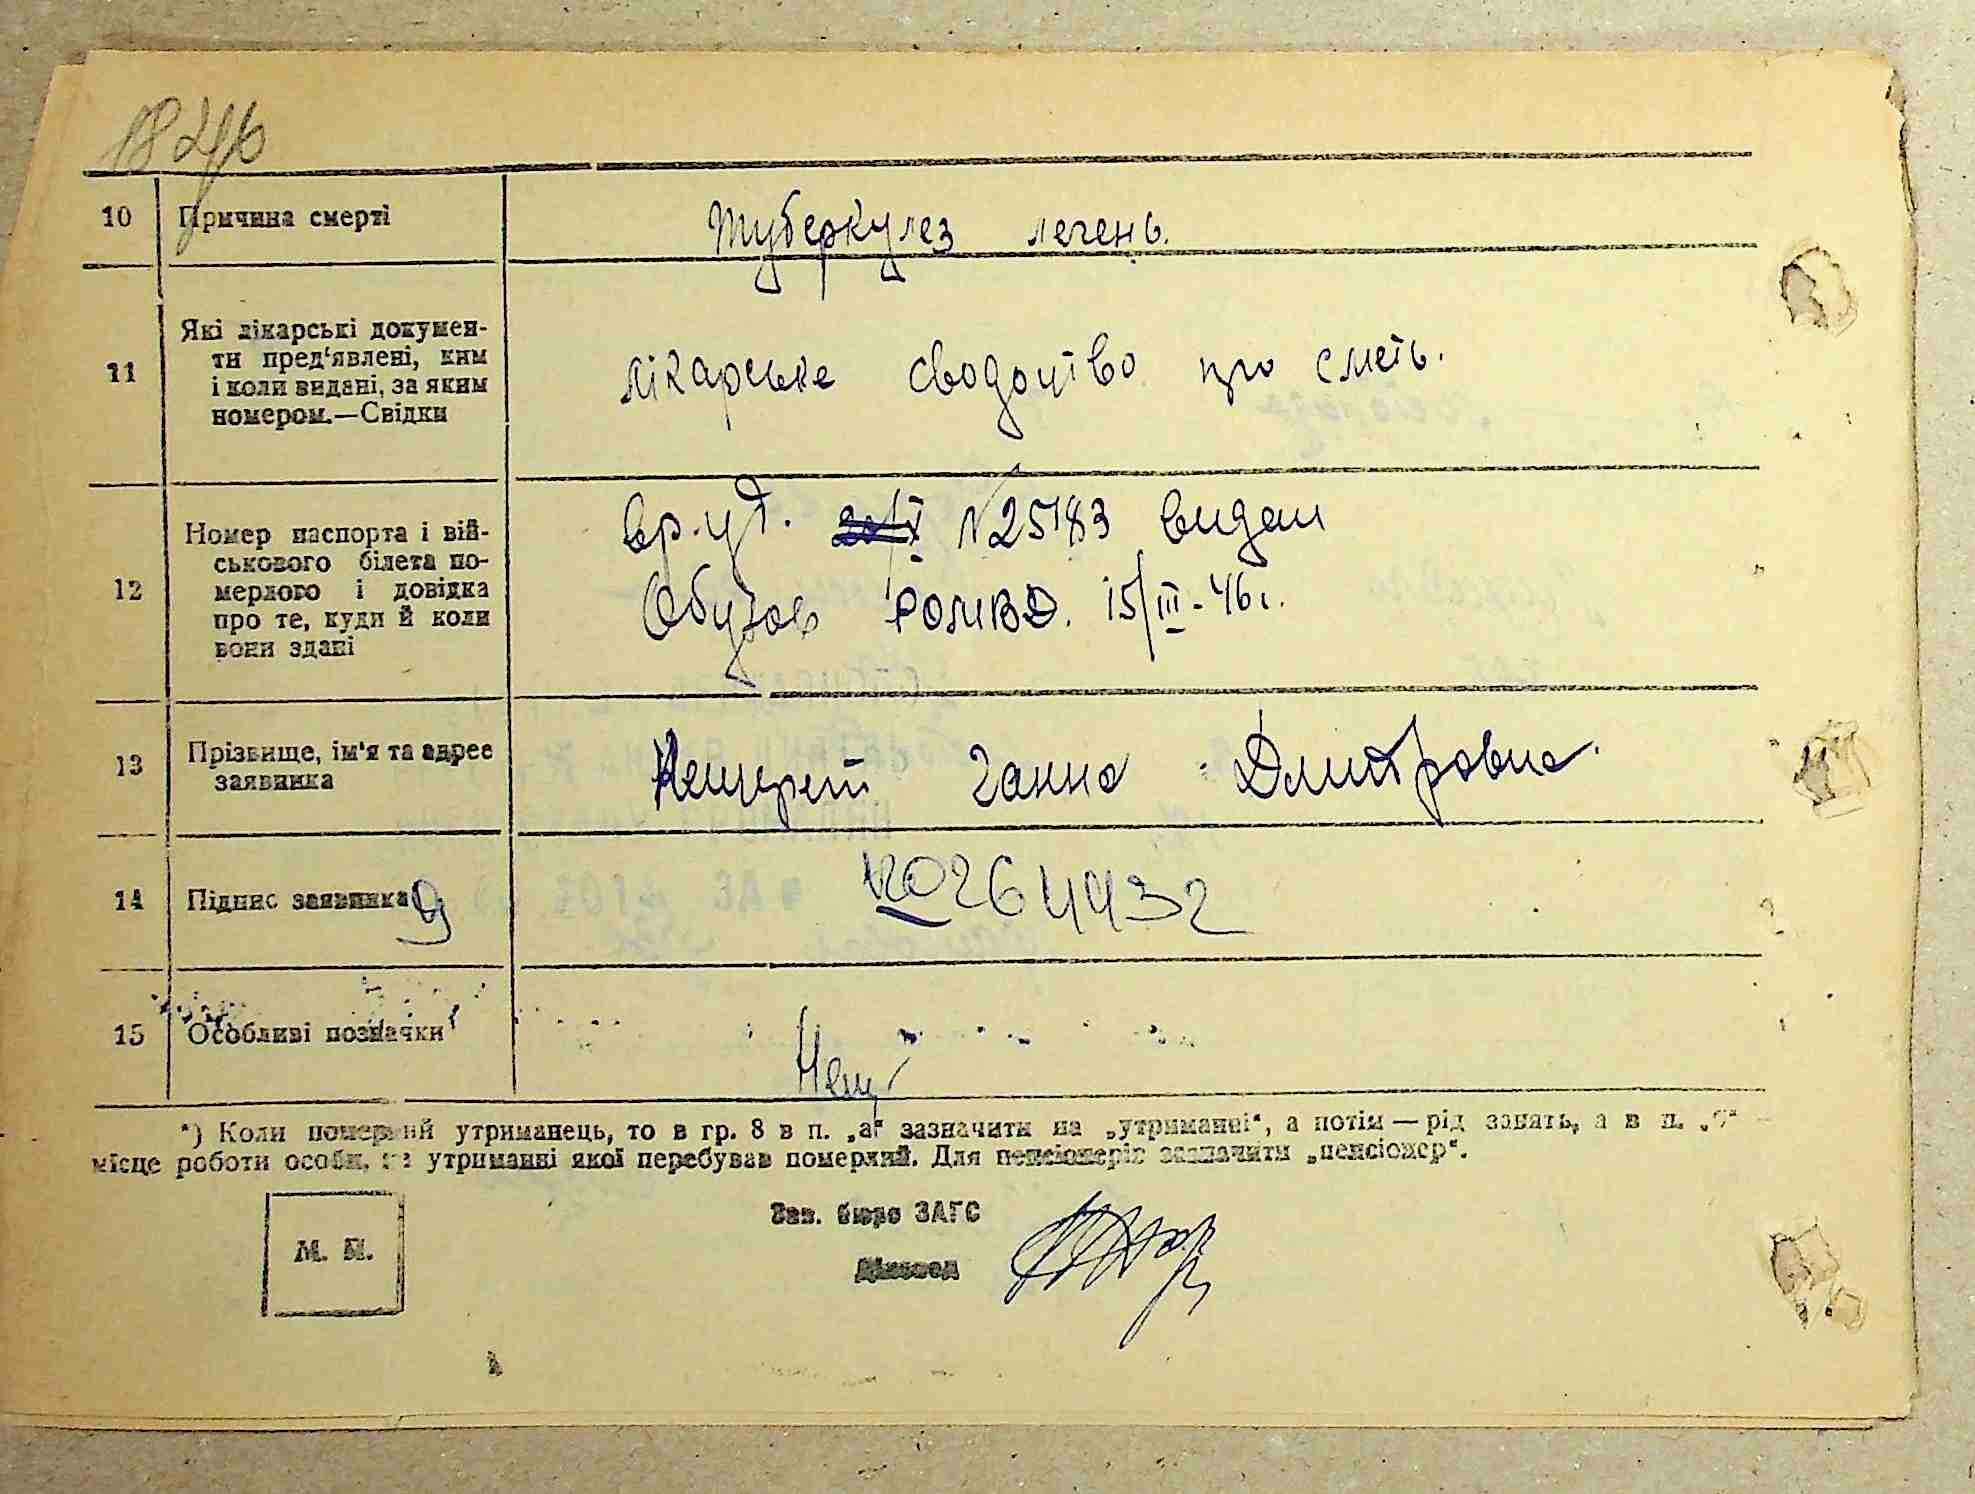 1846
10 Причина смерті
Туберкулез легень.
11 Які лікарські докумен-
ти пред'явлені, ким
і коли видані, за яким
номером.—Свідки
лікарське сводоцтво про сметь.
12 Номер паспорта і вій-
ськового білета по-
мерлого і довідка
про те, куди й коли
вони здані
вр. уд. N 25183 видан
Обухов РОМВД. 15/III-46 г.
13 Прізвище, ім'я та адрес
заявника
Ганна Дмитровна.
14 Підпис заявника
9
КО264432
15 Особливі позначки
*) Коли померлий утриманець, то в гр. 8 в п. „а" зазначити на „утриманні", а потім — рід занять, а в п.
місце роботи особи, на утриманні якої перебував померлий. Для пенсіонерів зазначити „пенсіонер".
Зав. бюро ЗАГС
М. П.
Діловод